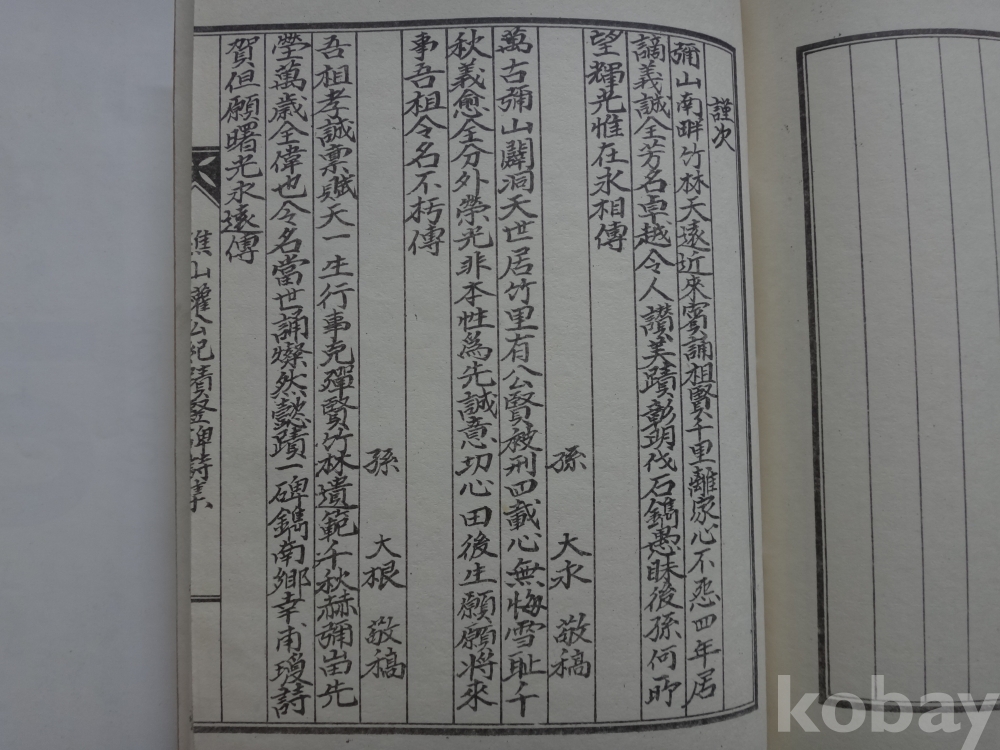 謹次
彌山南畔竹林天遠近來賓誦祖賢千里離家心不怨四年居
謫義誠全芳名卓越令人讚美蹟彰明伐石鐫愚昧後孫何所
望輝光惟在永相傳
孫 大永 敬稿
萬古彌山闢洞天世居竹里有公賢被刑四載心無悔雪恥千
秋義愈全分外榮光非本性爲先誠意切心田後生願願將來
事吾祖令名不朽傳
孫 大根 敬稿
吾祖孝誠禀賦天一生行事克殫賢竹林遺範千秋赫彌峀先
塋萬歲全偉也令名當世誦燦然懿蹟一碑鐫南鄉幸甫瓊詩
賀但願曙光永遠傳
樵山權公紀蹟竪碑詩集
kobay